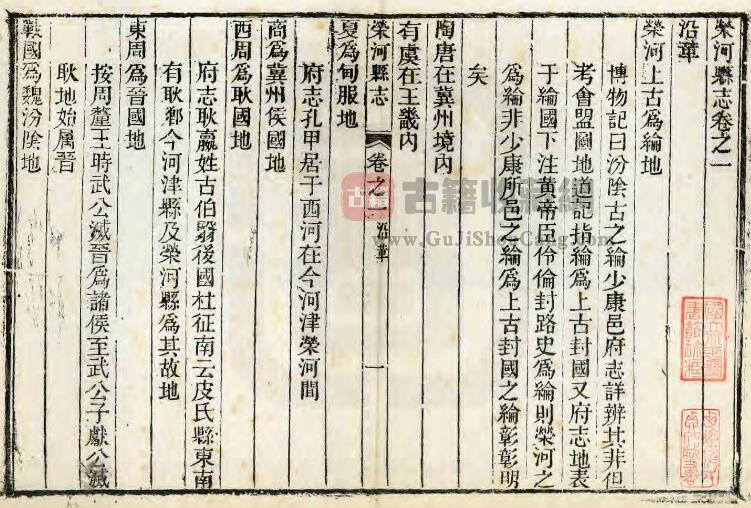 榮河縣志卷之一
沿革
榮河上古爲綸地
博物記曰汾陰古之綸少康邑府志詳辨其非但
考會盟圖地道記指綸爲上古封國又府志地表
于綸國下注黃帝臣伶倫封路史爲綸則榮河之
爲綸非少康所邑之綸爲上古封國之綸彰彰明
矣
陶唐在冀州境內
有虞在王畿內
榮河縣志
卷之一
沿革
一
夏爲甸服地
府志孔甲居于西河在今河津榮河間
商爲冀州侯國地
西周爲耿國地
府志耿嬴姓古伯翳後國杜征南云皮氏縣東南
有耿鄉今河津縣及榮河縣爲其故地
東周爲晉國地
按周釐王時武公滅晉爲諸侯至武公子獻公滅
耿地始属晉
戰國爲魏汾陰地
古籍
古籍收藏
www.GuJiShouCang.com